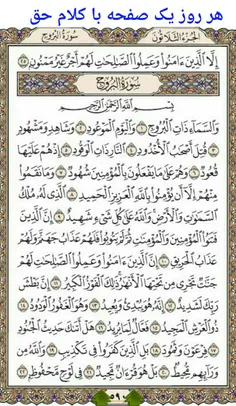 هر روز یک صفحه با کلام حق
الجزء الثلاثون
سورة البروج
إِلَّا الَّذِينَ ءَامَنُوا وَعَمِلُوا الصَّٰلِحَٰتِ لَهُمْ أَجْرٌ غَيْرُ مَمْنُونٍ ٢٥
سورة البروج
بِسْمِ اللَّهِ الرَّحْمَٰنِ الرَّحِيمِ
وَالسَّمَاءِ ذَاتِ الْبُرُوجِ ١ وَالْيَوْمِ الْمَوْعُودِ ٢ وَشَاهِدٍ وَمَشْهُودٍ
٣ قُتِلَ أَصْحَٰبُ الْأُخْدُودِ ٤ النَّارِ ذَاتِ الْوَقُودِ ٥ إِذْ هُمْ عَلَيْهَا
قُعُودٌ ٦ وَهُمْ عَلَىٰ مَا يَفْعَلُونَ بِالْمُؤْمِنِينَ شُهُودٌ ٧ وَمَا نَقَمُوا
مِنْهُمْ إِلَّا أَن يُؤْمِنُوا بِاللَّهِ الْعَزِيزِ الْحَمِيدِ ٨ الَّذِي لَهُ مُلْكُ
السَّمَٰوَٰتِ وَالْأَرْضِ وَاللَّهُ عَلَىٰ كُلِّ شَيْءٍ شَهِيدٌ ٩ إِنَّ الَّذِينَ
فَتَنُوا الْمُؤْمِنِينَ وَالْمُؤْمِنَٰتِ ثُمَّ لَمْ يَتُوبُوا فَلَهُمْ عَذَابُ جَهَنَّمَ وَلَهُمْ
عَذَابُ الْحَرِيقِ ١٠ إِنَّ الَّذِينَ ءَامَنُوا وَعَمِلُوا الصَّٰلِحَٰتِ لَهُمْ
جَنَّٰتٌ تَجْرِي مِن تَحْتِهَا الْأَنْهَٰرُ ذَٰلِكَ الْفَوْزُ الْكَبِيرُ ١١ إِنَّ بَطْشَ
رَبِّكَ لَشَدِيدٌ ١٢ إِنَّهُ هُوَ يُبْدِئُ وَيُعِيدُ ١٣ وَهُوَ الْغَفُورُ الْوَدُودُ ١٤
ذُو الْعَرْشِ الْمَجِيدُ ١٥ فَعَّالٌ لِّمَا يُرِيدُ ١٦ هَلْ أَتَىٰكَ حَدِيثُ الْجُنُودِ
١٧ فِرْعَوْنَ وَثَمُودَ ١٨ بَلِ الَّذِينَ كَفَرُوا فِي تَكْذِيبٍ ١٩ وَاللَّهُ مِن
وَرَائِهِم مُّحِيطٌ ٢٠ بَلْ هُوَ قُرْءَانٌ مَّجِيدٌ ٢١ فِي لَوْحٍ مَّحْفُوظٍ ٢٢
٥٩٠